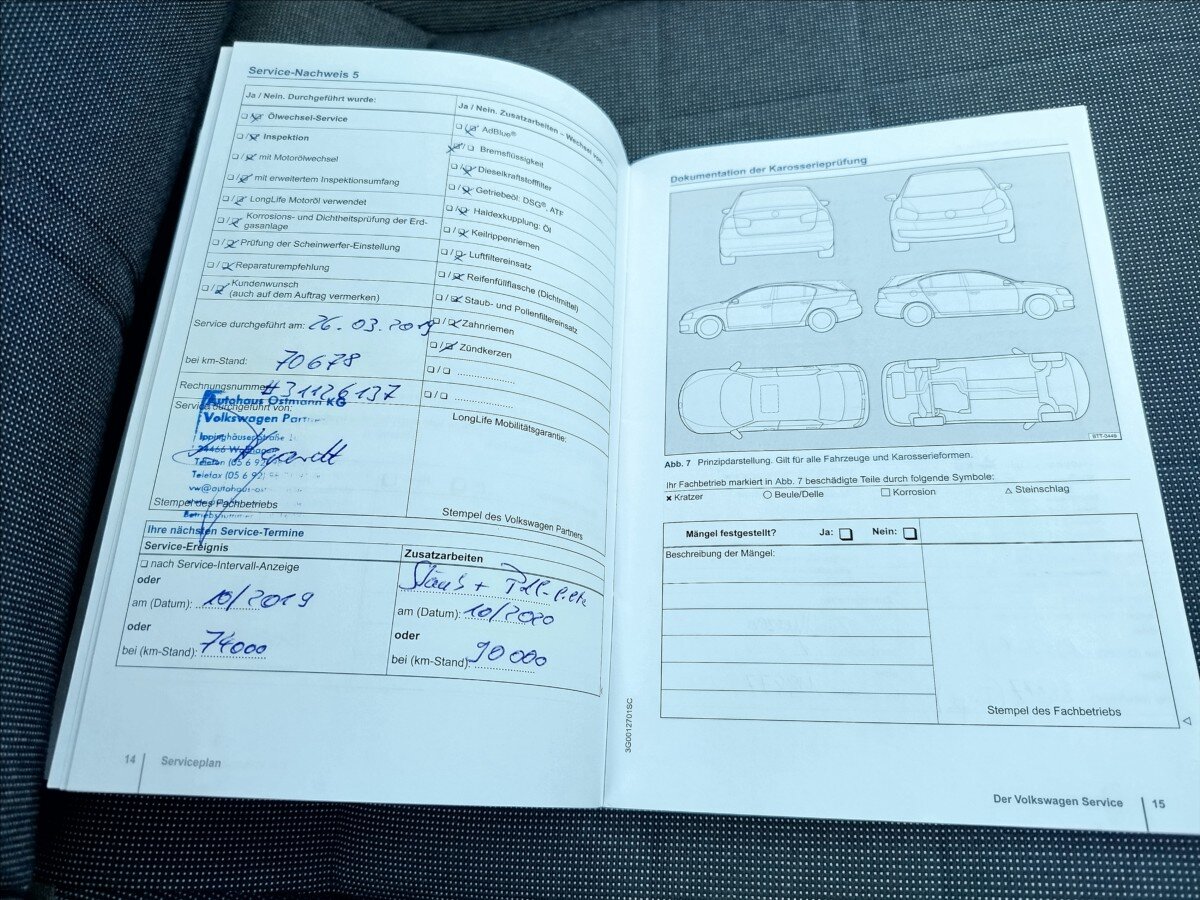 Service-Nachweis 5
Ja / Nein. Durchgeführt wurde:
Ölwechsel-Service
Inspektion
mit Motorölwechsel
mit erweitertem Inspektionsumfang
LongLife Motoröl verwendet
Korrosions- und Dichtheitsprüfung der Erd-
gasanlage
Prüfung der Scheinwerfer-Einstellung
Reparaturempfehlung
Kundenwunsch
(auch auf dem Auftrag vermerken)
Service durchgeführt am: 26.03.2019
bei km-Stand: 70678
Rechnungsnummer #31126137
Service durchgeführt von:
Autohaus Ostmann KG
Volkswagen Partner
Ippinghäuser Straße
34466
Telefon (05 6 92)
Telefax (05 6 92)
vw@autohaus-ost
Stempel des Fachbetriebs
Ja / Nein. Zusatzarbeiten – Wechsel von:
AdBlue®
Bremsflüssigkeit
Dieselkraftstofffilter
Getriebeöl: DSG®, ATF
Haldexkupplung: Öl
Keilrippenriemen
Luftfiltereinsatz
Reifenfüllflasche (Dichtmittel)
Staub- und Pollenfiltereinsatz
Zahnriemen
Zündkerzen
LongLife Mobilitätsgarantie:
Stempel des Volkswagen Partners
Ihre nächsten Service-Termine
Service-Ereignis
nach Service-Intervall-Anzeige
oder
am (Datum): 10/2019
oder
bei (km-Stand): 74000
Zusatzarbeiten
Staub +
am (Datum): 10/2020
oder
bei (km-Stand): 90000
14 Serviceplan
Dokumentation der Karosserieprüfung
BTT-0449
Abb. 7 Prinzipdarstellung. Gilt für alle Fahrzeuge und Karosserieformen.
Ihr Fachbetrieb markiert in Abb. 7 beschädigte Teile durch folgende Symbole:
Kratzer Beule/Delle Korrosion Steinschlag
Mängel festgestellt? Ja: Nein:
Beschreibung der Mängel:
Stempel des Fachbetriebs
3G0012701SC
Der Volkswagen Service 15